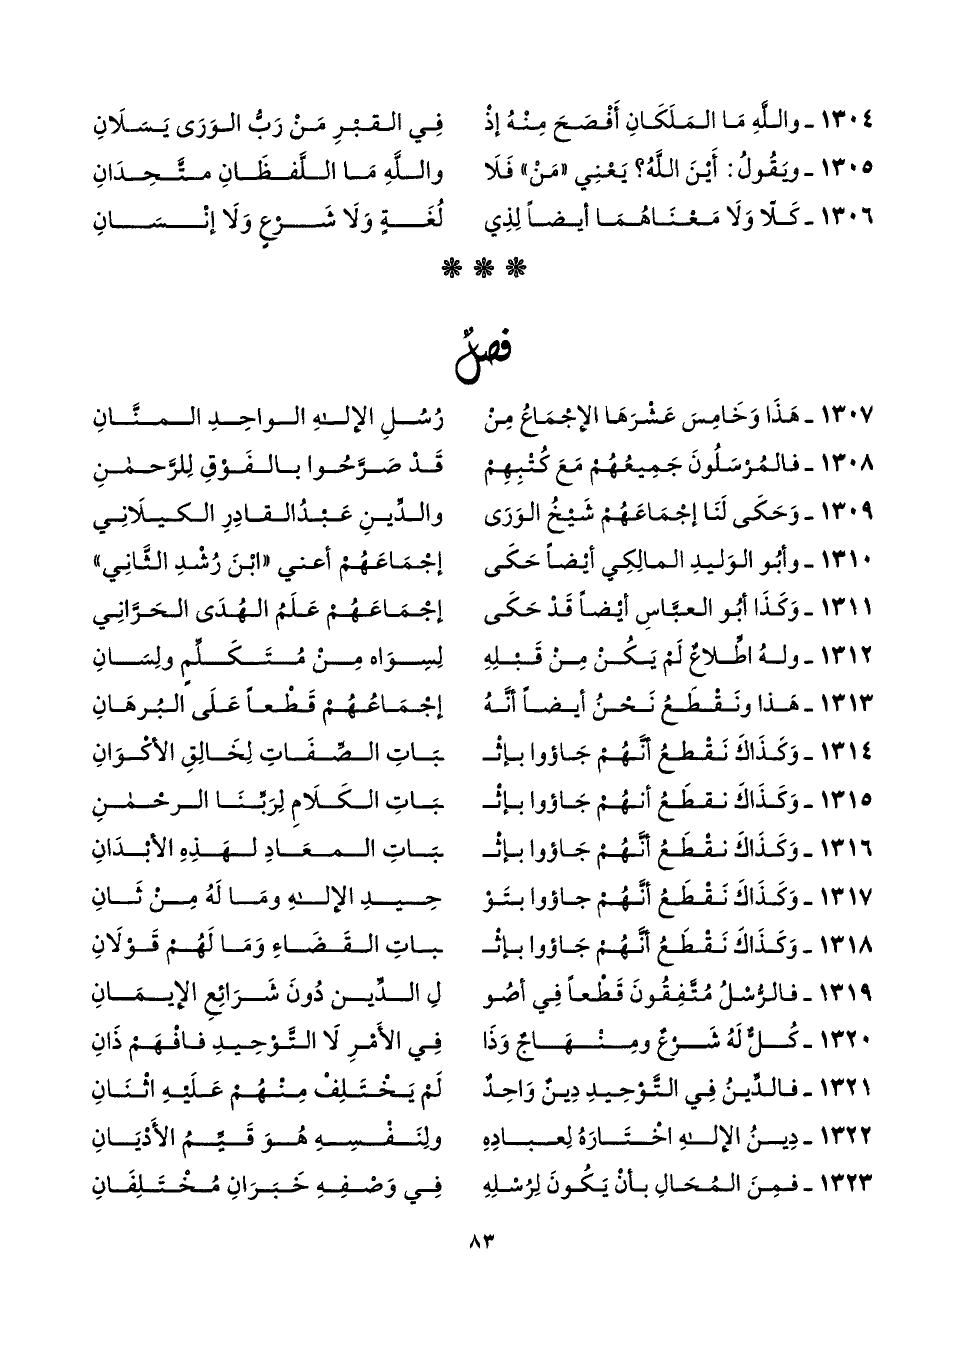 ١٣٠٤ ـ واللَّهِ مَا المَلَكَانِ أَفْصَحَ مِنْهُ إذْ فِي القبْرِ مَنْ رَبُّ الوَرَى يَسَلَانِ
١٣٠٥ ـ ويَقُولُ: أَيْنَ اللَّهُ؟ يَعْنِي «مَنْ» فَلَا واللَّهِ مَا اللَّفْظَانِ متَّحِدَانِ
١٣٠٦ ـ كَلَّا وَلَا مَعْنَاهُمَا أيضاً لِذِي لُغَةٍ وَلَا شَرْعٍ وَلَا إنْسَانِ
❋ ❋ ❋
فصلٌ
١٣٠٧ ـ هَذَا وَخَامِسَ عَشْرَهَا الإجْمَاعُ مِنْ رُسُلِ الإلـٰهِ الواحِدِ المنَّانِ
١٣٠٨ ـ فالمُرْسَلُونَ جَمِيعُهُمْ مَعَ كُتْبِهِمْ قَدْ صَرَّحُوا بالفَوْقِ لِلرَّحمٰنِ
١٣٠٩ ـ وَحَكَى لَنَا إجْمَاعَهُمْ شَيْخُ الوَرَى والدِّينِ عَبْدُالقادِرِ الكيلَاني
١٣١٠ ـ وأبُو الوَليدِ المالِكِي أيْضاً حَكَى إجْمَاعَهُمْ أعني «ابْنَ رُشْدِ الثَّانِي»
١٣١١ ـ وَكَذَا أبُو العبَّاسِ أيْضاً قَدْ حَكَى إجْمَاعَهُمْ عَلَمُ الهُدَى الحَرَّانِي
١٣١٢ ـ ولهُ اطِّلاعٌ لَمْ يَكُنْ مِنْ قَبْلِهِ لِسِوَاه مِنْ مُتَكَلِّمٍ ولِسَانِ
١٣١٣ ـ هَذا ونَقْطَعُ نَحْنُ أيضاً أنَّهُ إجْمَاعُهُمْ قَطْعاً عَلَى البُرهَانِ
١٣١٤ ـ وَكَذَاكَ نَقْطَعُ أنَّهُمْ جَاؤوا بإثْـ ـبَاتِ الصِّفَاتِ لِخَالِقِ الأكْوَانِ
١٣١٥ ـ وَكَذَاكَ نقطَعُ أنهُمْ جَاؤوا بإثْـ ـبَاتِ الكَلَامِ لِرَبِّنَا الرحْمٰنِ
١٣١٦ ـ وَكَذَاكَ نقْطَعُ أنَّهُمْ جَاؤوا بإثْـ ـبَاتِ المعَادِ لهَذِهِ الأبْدَانِ
١٣١٧ ـ وَكَذَاكَ نَقْطَعُ أنَّهُمْ جاؤوا بتَوْ حِيدِ الإلـٰهِ ومَا لَهُ مِنْ ثَانِ
١٣١٨ ـ وَكَذَاكَ نَقْطَعُ أنَّهُمْ جَاؤوا بإثْـ ـباتِ القَضَاءِ وَمَا لَهُمْ قَوْلَانِ
١٣١٩ ـ فالرُّسْلُ مُتَّفِقُونَ قَطْعاً فِي أصُو لِ الدِّينِ دُونَ شَرَائِعِ الإيمَانِ
١٣٢٠ ـ كُلٌّ لَهُ شَرْعٌ ومِنْهَاجٌ وَذَا فِي الأمْرِ لَا التَّوْحِيدِ فافْهَمْ ذَانِ
١٣٢١ ـ فالدِّينُ فِي التَّوْحِيدِ دِينٌ وَاحِدٌ لَمْ يَخْتَلِفْ مِنْهُمْ عَلَيْهِ اثْنَانِ
١٣٢٢ ـ دِينُ الإلـٰهِ اخْتَارَهُ لِعبَادِهِ ولِنَفْسِهِ هُوَ قَيِّمُ الأَدْيَانِ
١٣٢٣ ـ فمِنَ المُحَالِ بأنْ يَكُونَ لِرُسْلِهِ فِي وَصْفِهِ خَبَرَانِ مُخْتَلِفَانِ
٨٣